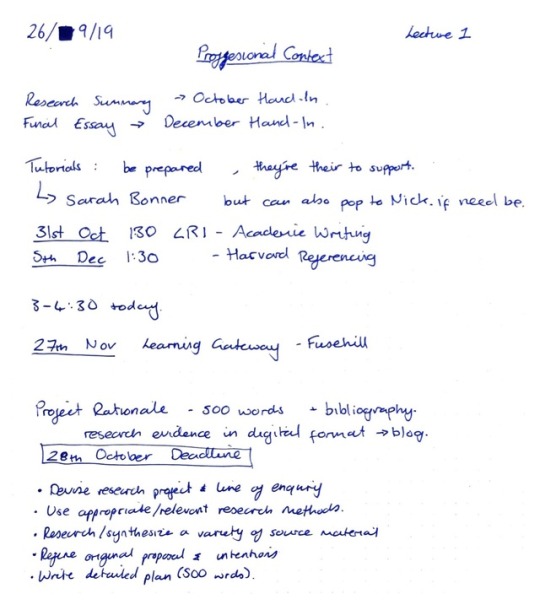 26/ 9/19
Lecture 1
Proffesional Context
Research Summary → October Hand-In.
Final Essay → December Hand-In.
Tutorials : be prepared , they're their to support.
↳ Sarah Bonner but can also pop to Nick. if need be.
31st Oct 130 LR1 - Academic Writing
5th Dec 1:30 - Harvard Referencing
3-4:30 today.
27th Nov Learning Gateway - Fusehill
Project Rationale - 500 words + bibliography.
research evidence in digital format → blog.
28th October Deadline
• Devise research project & line of enquiry
• Use appropriate/relevant research methods.
• Research/synthesize a variety of source material
• Refine original proposal & intentions
• Write detailed plan (500 wrds).